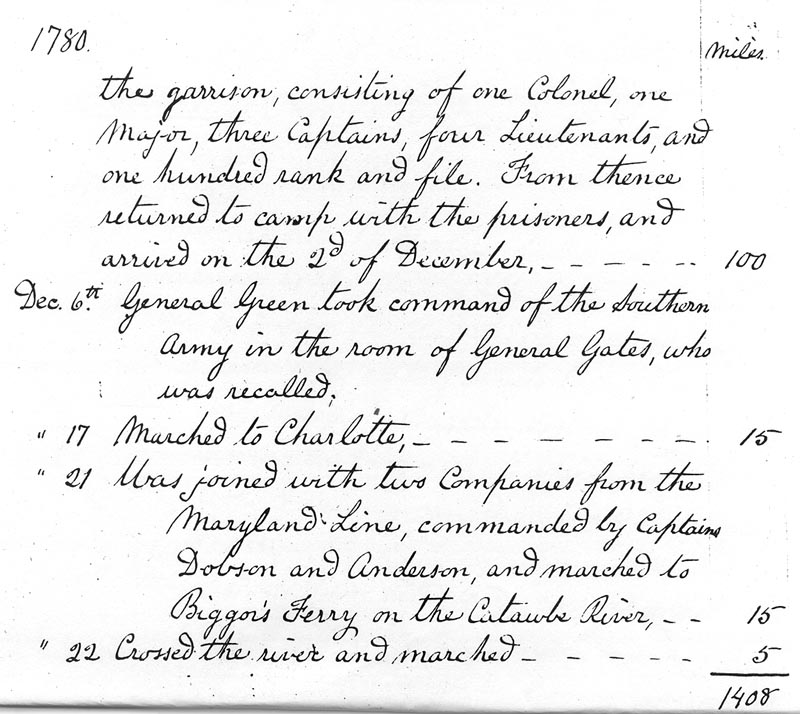 1780.
miles.
the garrison, consisting of one Colonel, one
Major, three Captains, four Lieutenants, and
one hundred rank and file. From thence
returned to camp with the prisoners, and
arrived on the 2d of December, - - - - - - 100
Dec. 6th. General Green took command of the Southern
Army in the room of General Gates, who
was recalled.
" 17 Marched to Charlotte, - - - - - - - 15
" 21 Was joined with two Companies from the
Maryland Line, commanded by Captains
Dobson and Anderson, and marched to
Biggor's Ferry on the Catawbe River, - - 15
" 22 Crossed the river and marched - - - - - 5
1408